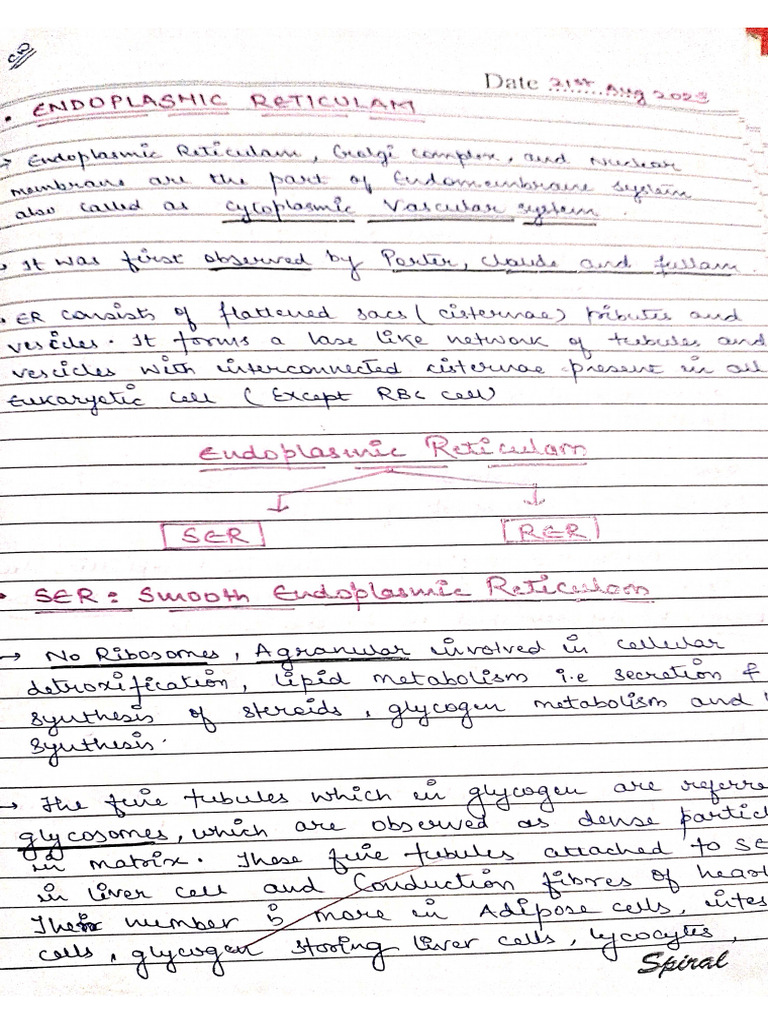 CD
Date 21st Aug 2023
• ENDOPLASMIC RETICULAM
→ Endoplasmic Reticulam, Golgi complex, and Nuclear
membrane are the part of Endomembrane system
also called as cytoplasmic Vascular system.
• It was first observed by Porter, Claude and fullam.
• ER consists of flattened sacs (cisternae) tributes and
vesicles. It forms a lase like network of tubules and
vescicles with interconnected cisternae present in all
Eukaryotic cell (Except RBC cell)
Endoplasmic Reticulam
SER RER
• SER: Smooth Endoplasmic Reticulam
→ No Ribosomes, Agranular involved in cellular
detroxification, lipid metabolism i.e secretion &
synthesis of steroids, glycogen metabolism and
synthesis.
→ The fine tubules which in glycogen are referre
glycosomes, which are observed as dense partic
in matrix. These fine tubules attached to SE
in liver cell and Conduction fibres of heart
Their number is more in Adipose cells, intes
cells, glycogen storing liver cells, lycocytes,
Spiral